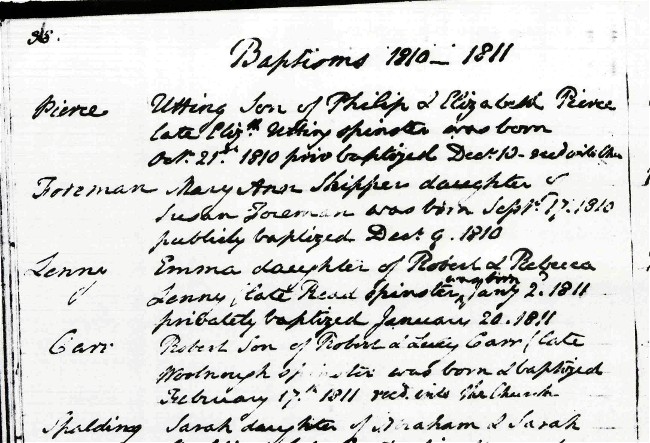 38.
Baptisms 1810 – 1811
Pierce Utting Son of Philip & Elizabeth Pierce
late Elizth Utting spinster was born
Octr. 21st 1810 priv baptized Decr.
Foreman Mary Ann Shippen daughter of
Susan Foreman was born Septr. 17. 1810
publicly baptized Decr 9. 1810
Lenny Emma daughter of Robert & Rebecca
was born
Lenny (late Read spinster Jany 2. 1811
privately baptized January 20. 1811
Carr Robert Son of Robert & Lucy Carr (late
Woolnough spinster was born & baptized
February 17th 1811 recd into the Church
Spalding Sarah daughter of Abraham & Sarah